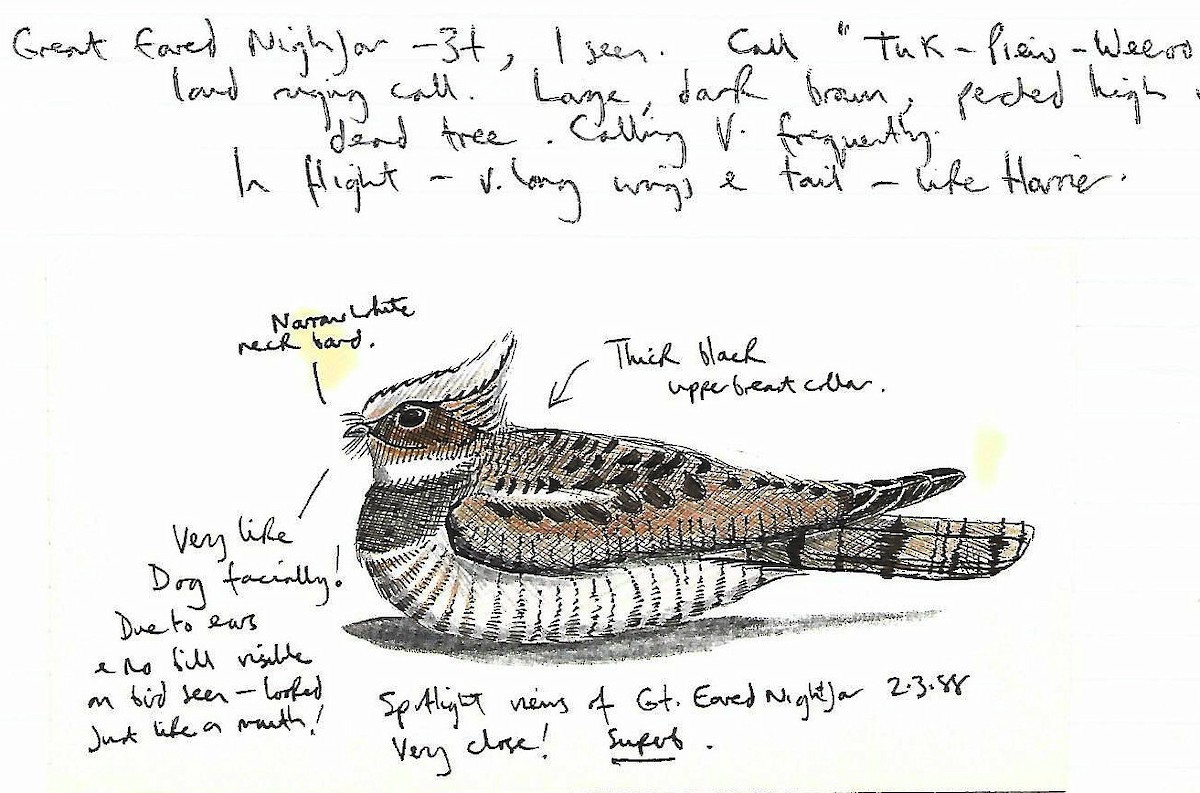 Great Eared Nightjar - 3+, 1 seen. Call "Tuk-Piew-Weeoo
loud ringing call. Large, dark brown, perched high
dead tree. Calling V. frequently.
In flight - v. long wings & tail - like Harrier.
Narrow white
neck band.
Thick black
upper breast collar.
Very like
Dog facially!
Due to ears
& no bill visible
on bird seen - looked
just like a mouth!
Spotlight views of Gt. Eared Nightjar 2.3.88
Very close! Superb.